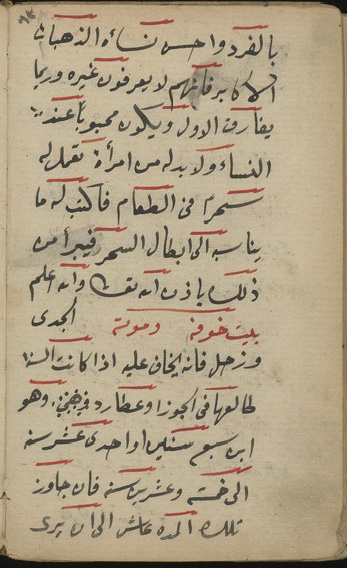 بالفرد واحسن نساءه الذهبات
الاكابر فانهم لا يعرفون غيره وربما
يفارق الاول ويكون محبوبا عند
النساء ولا بد له من امرأة تعمل له
سحرا فى الطعام فاكتب له ما
يناسب الى ابطال السحر فيبرأ من
ذلك باذن الله تعا والله اعلم
بيت خوفه وموته الجدى
وزحل فانه يخاف عليه اذا كانت السنة
طالعها فى الجوزا وعطارد وهو
ابن سبع سنين او احدى عشر سنه
الى خمسة وعشرين سنه فان جاوز
تلك المده عاش الى ان يرى